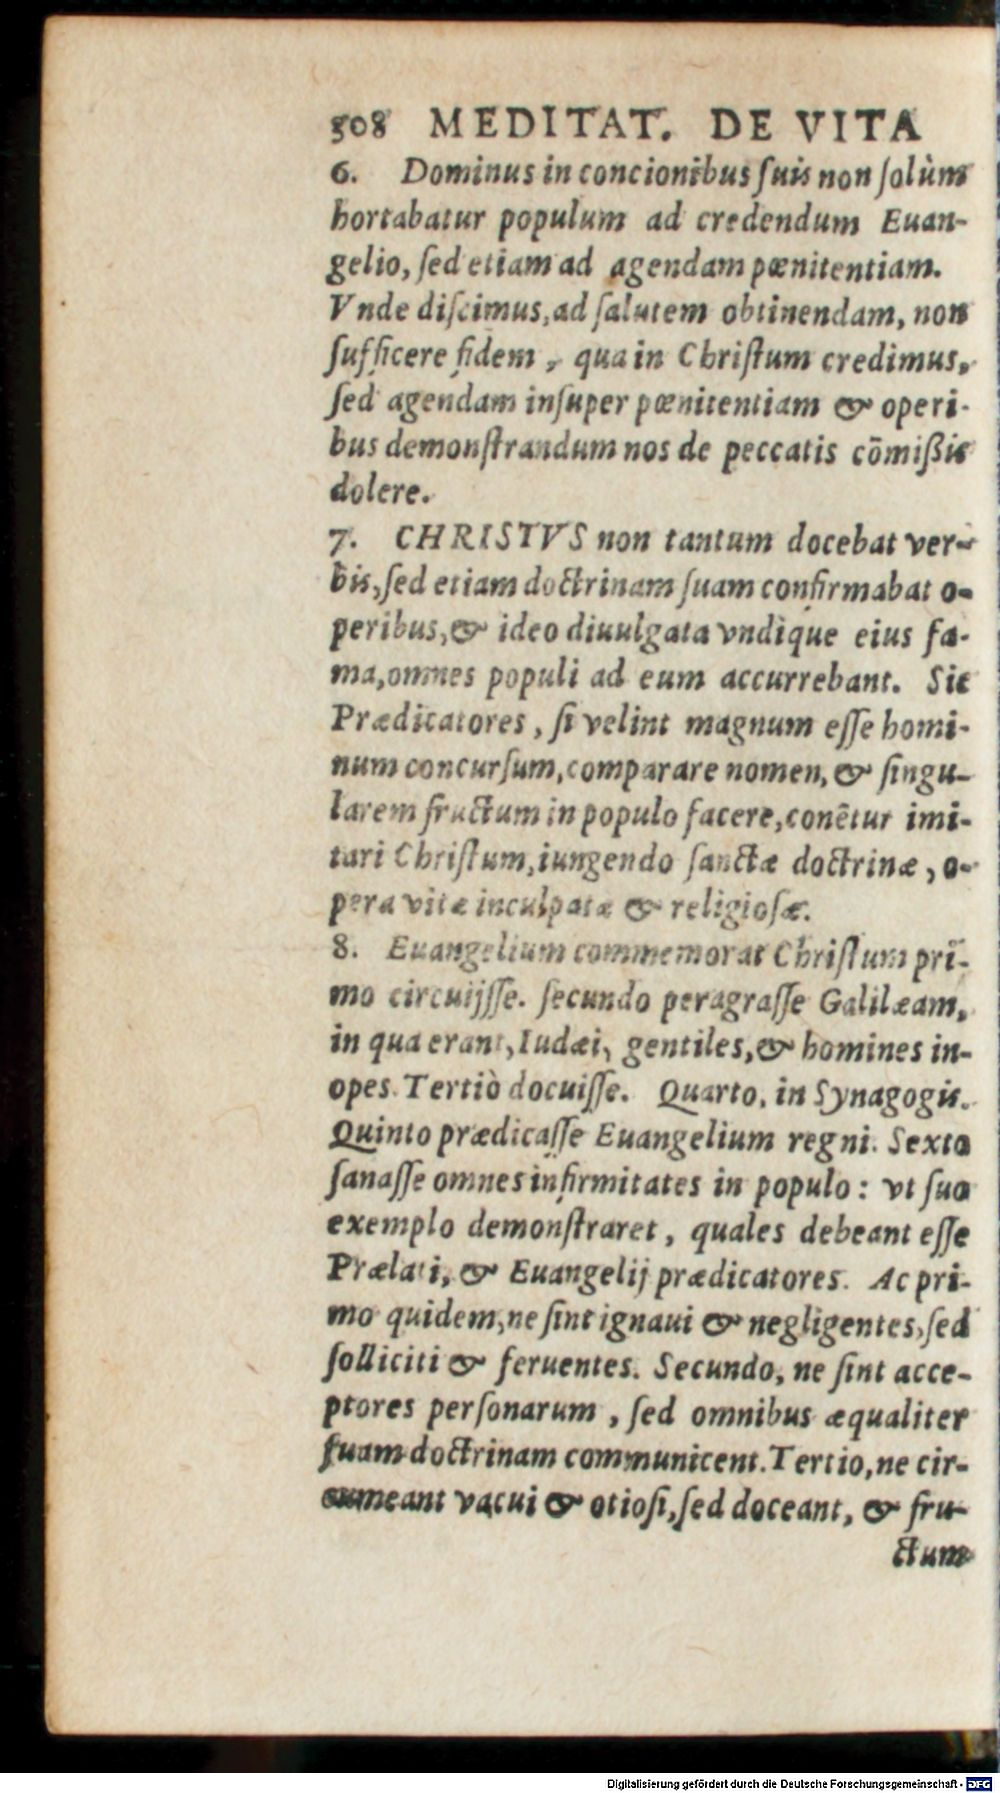 508 MEDITAT. DE VITA
6. Dominus in concionibus ſuis non ſolùm
hortabatur populum ad credendum Euan-
gelio, ſed etiam ad agendam pœnitentiam.
Vnde diſcimus, ad ſalutem obtinendam, non
ſufficere fidem, qua in Chriſtum credimus,
ſed agendam inſuper pœnitentiam & operi-
bus demonſtrandum nos de peccatis cõmißis
dolere.
7. CHRISTVS non tantum docebat ver-
bis, ſed etiam doctrinam ſuam confirmabat o-
peribus, & ideo diuulgata vndique eius fa-
ma, omnes populi ad eum accurrebant. Sic
Prædicatores, ſi velint magnum eſſe homi-
num concurſum, comparare nomen, & ſingu-
larem fructum in populo facere, conẽtur imi-
tari Chriſtum, iungendo ſanctæ doctrinæ, o-
pera vitæ inculpatæ & religioſæ.
8. Euangelium commemorat Chriſtum pri-
mo circuijſſe. ſecundo peragraſſe Galilæam,
in qua erant, Iudæi, gentiles, & homines in-
opes. Tertiò docuiſſe. Quarto, in Synagogis.
Quinto prædicaſſe Euangelium regni. Sexto
ſanaſſe omnes infirmitates in populo: vt ſuo
exemplo demonſtraret, quales debeant eſſe
Prælati, & Euangelij prædicatores. Ac pri-
mo quidem, ne ſint ignaui & negligentes, ſed
ſolliciti & feruentes. Secundo, ne ſint acce-
ptores perſonarum, ſed omnibus æqualiter
ſuam doctrinam communicent. Tertio, ne cir-
cumeant vacui & otioſi, ſed doceant, & fru-
ctum
Digitalisierung gefördert durch die Deutsche Forschungsgemeinschaft - DFG